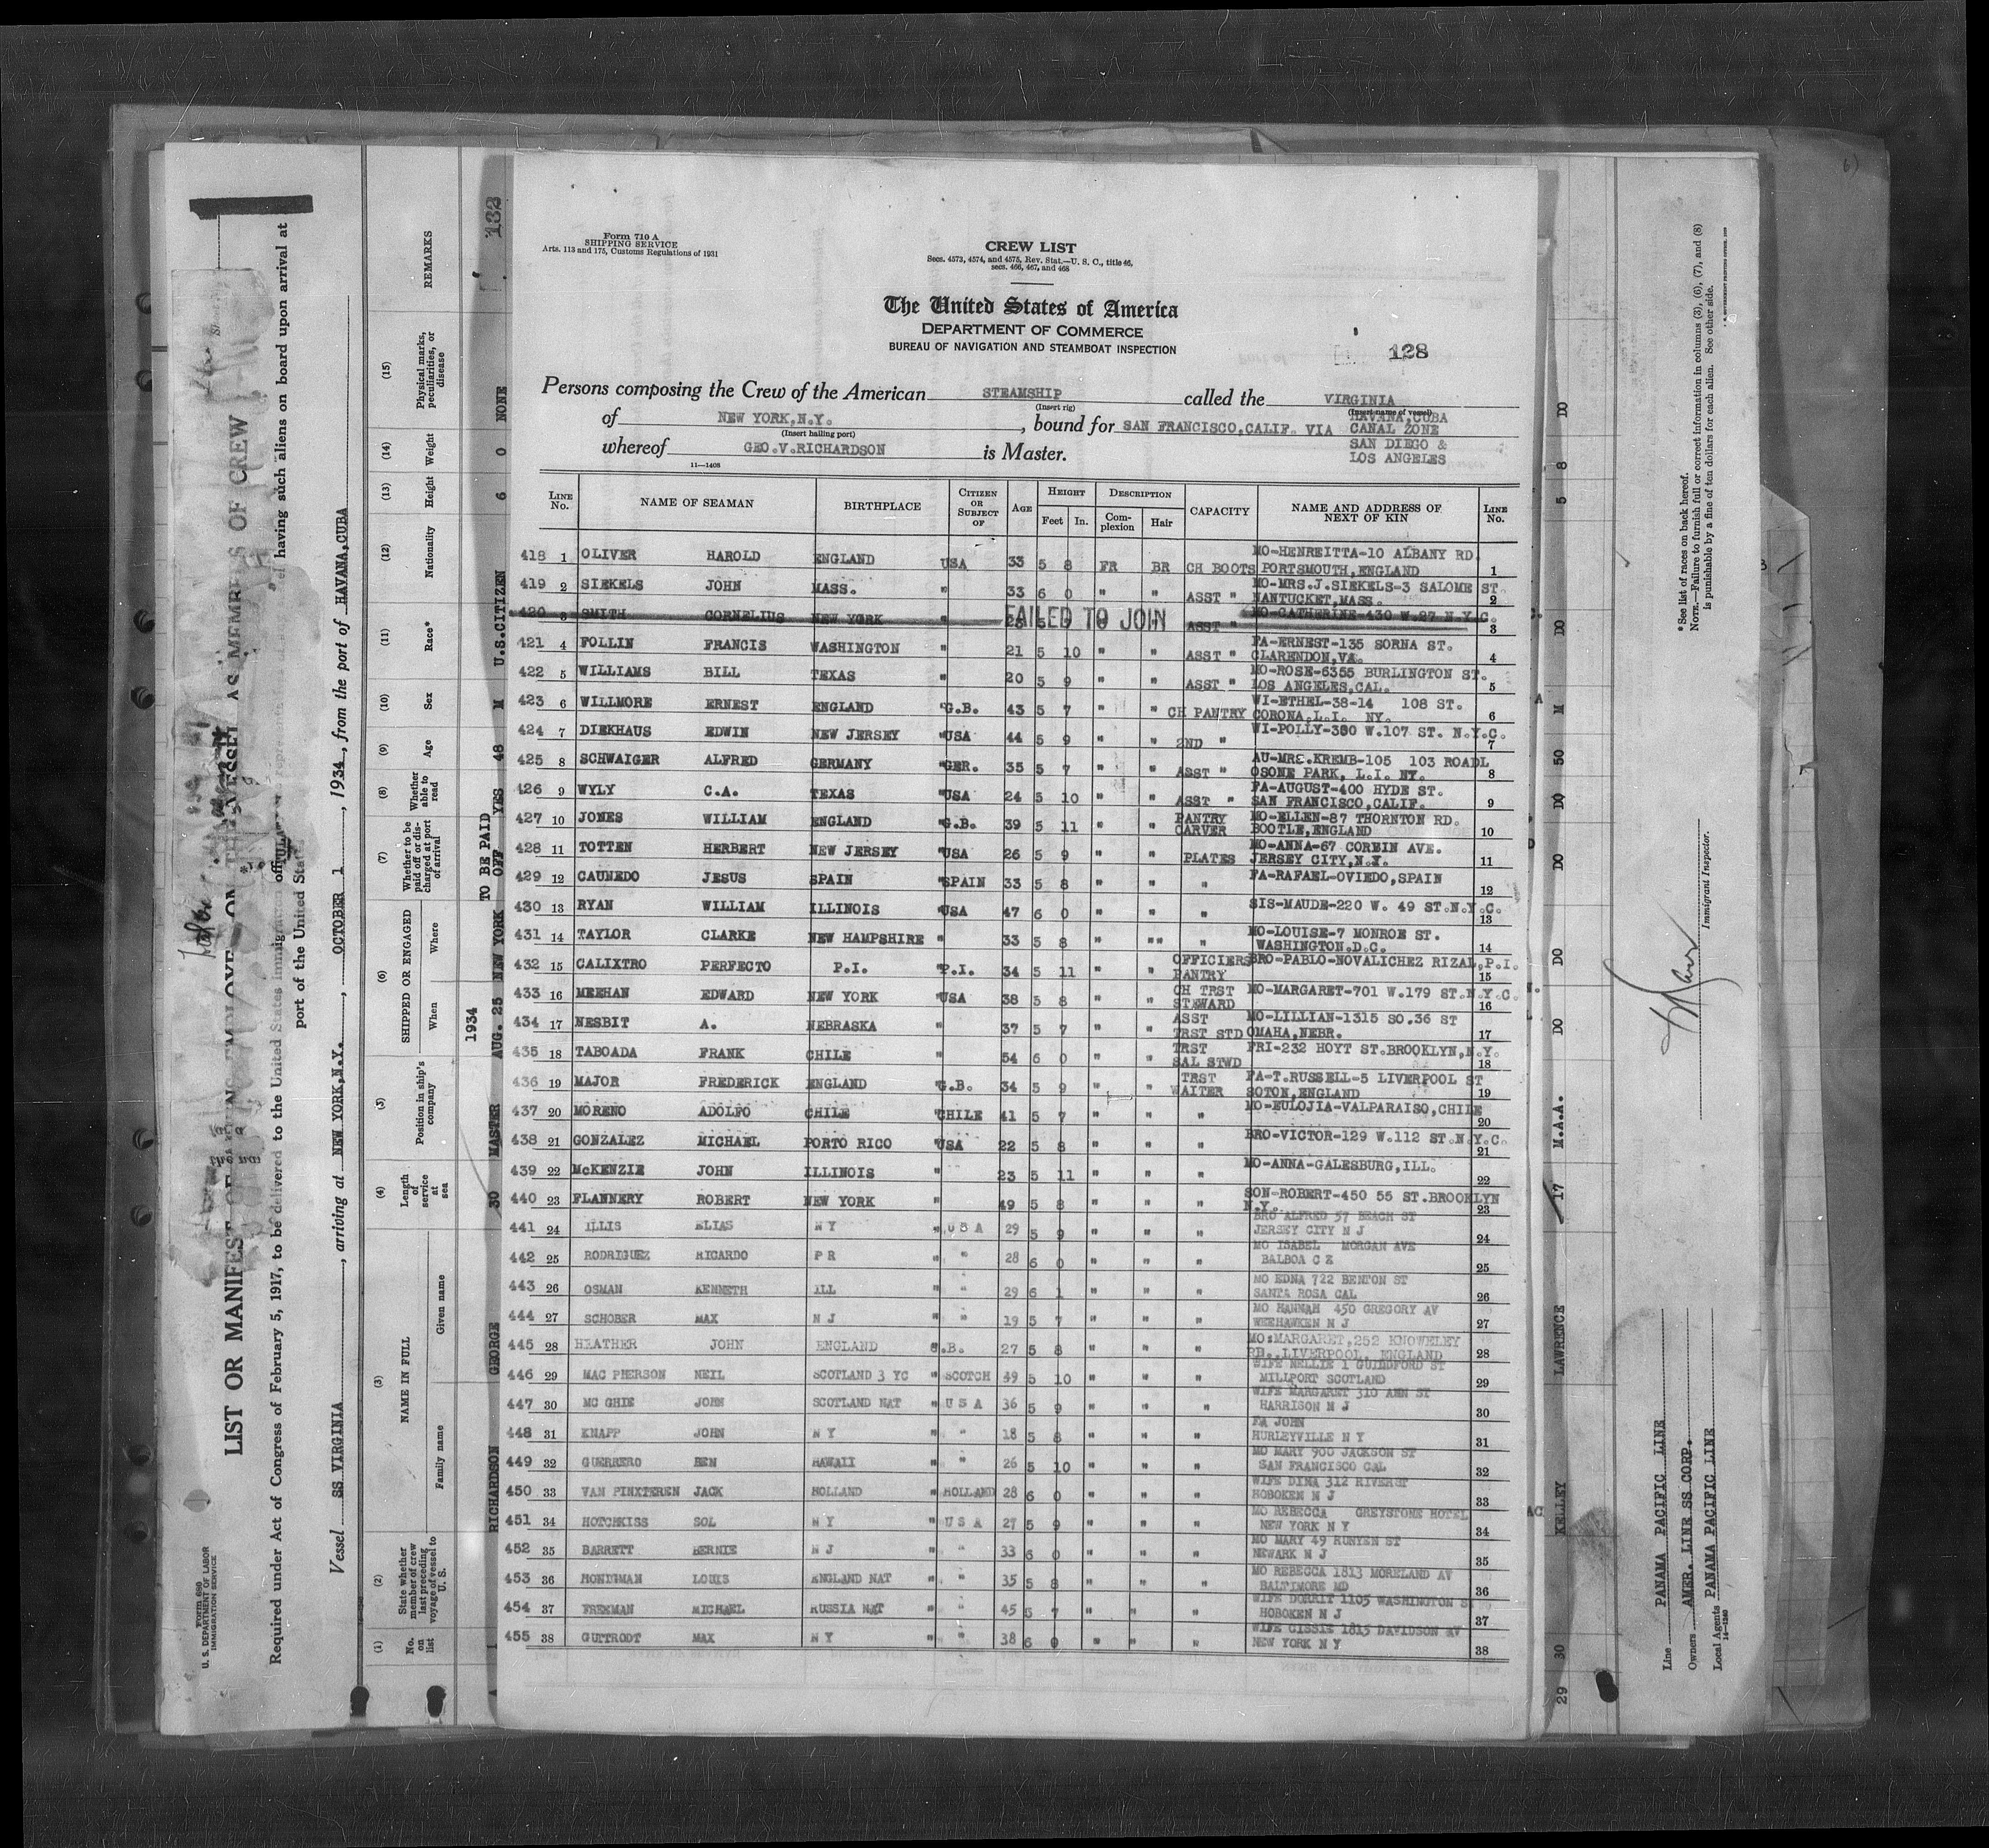 Form 710 A
SHIPPING SERVICE
Arts. 113 and 175, Customs Regulations of 1931
CREW LIST
Secs. 4573, 4574, and 4575, Rev. Stat.—U. S. C., title 46,
secs. 466, 467, and 468
The United States of America
DEPARTMENT OF COMMERCE
BUREAU OF NAVIGATION AND STEAMBOAT INSPECTION
128
Persons composing the Crew of the American STEAMSHIP called the VIRGINIA
(Insert rig) (Insert name of vessel)
of NEW YORK,N.Y., bound for SAN FRANCISCO,CALIF. VIA HAVANA,CUBA
CANAL ZONE
(Insert hailing port)
whereof GEO.V.RICHARDSON is Master. SAN DIEGO &
LOS ANGELES
11—1408
LINE No. NAME OF SEAMAN BIRTHPLACE CITIZEN OR SUBJECT OF AGE HEIGHT Feet In. DESCRIPTION Complexion Hair CAPACITY NAME AND ADDRESS OF NEXT OF KIN LINE No.
418 1 OLIVER HAROLD ENGLAND USA 33 5 8 FR BR CH BOOTS MO-HENREITTA-10 ALBANY RD. PORTSMOUTH,ENGLAND 1
419 2 SIEKELS JOHN MASS. " 33 6 0 " " ASST " MO-MRS.J.SIEKELS-3 SALOME ST NANTUCKET,MASS. 2
420 3 SMITH CORNELIUS NEW YORK " FAILED TO JOIN ASST " MO-CATHERINE-430 W.27 N.Y.C. 3
421 4 FOLLIN FRANCIS WASHINGTON " 21 5 10 " " ASST " FA-ERNEST-135 SORNA ST. CLARENDON,VA. 4
422 5 WILLIAMS BILL TEXAS " 20 5 9 " " ASST " MO-ROSE-6355 BURLINGTON ST. LOS ANGELES,CAL. 5
423 6 WILLMORE ERNEST ENGLAND "G.B. 43 5 7 " " CH PANTRY WI-ETHEL-38-14 108 ST. CORONA,L.I. NY. 6
424 7 DIEKHAUS EDWIN NEW JERSEY "USA 44 5 9 " " 2ND " WI-POLLY-380 W.107 ST. N.Y.C. 7
425 8 SCHWAIGER ALFRED GERMANY "GER. 35 5 7 " " ASST " AU-MRS.KREMB-105 103 ROADL OSONE PARK, L.I. NY. 8
426 9 WYLY C.A. TEXAS "USA 24 5 10 " " ASST " FA-AUGUST-400 HYDE ST. SAN FRANCISCO,CALIF. 9
427 10 JONES WILLIAM ENGLAND "G.B. 39 5 11 " " PANTRY CARVER MO-ELLEN-87 THORNTON RD. BOOTLE,ENGLAND 10
428 11 TOTTEN HERBERT NEW JERSEY "USA 26 5 9 " " PLATES MO-ANNA-67 CORBIN AVE. JERSEY CITY,N.J. 11
429 12 CAUNEDO JESUS SPAIN "SPAIN 33 5 8 " " " FA-RAFAEL-OVIEDO,SPAIN 12
430 13 RYAN WILLIAM ILLINOIS "USA 47 6 0 " " " SIS-MAUDE-220 W. 49 ST.N.Y.C. 13
431 14 TAYLOR CLARKE NEW HAMPSHIRE " 33 5 8 " "" " MO-LOUISE-7 MONROE ST. WASHINGTON.D.C. 14
432 15 CALIXTRO PERFECTO P.I. "P.I. 34 5 11 " " OFFICIERS PANTRY BRO-PABLO-NOVALICHEZ RIZAL,P.I. 15
433 16 MEEHAN EDWARD NEW YORK "USA 38 5 8 " " CH TRST STEWARD MO-MARGARET-701 W.179 ST.N.Y.C. 16
434 17 NESBIT A. NEBRASKA " 37 5 7 " " ASST TRST STD MO-LILLIAN-1315 SO.36 ST OMAHA,NEBR. 17
435 18 TABOADA FRANK CHILE " 54 6 0 " " TRST SAL STWD FRI-232 HOYT ST.BROOKLYN,N.Y. 18
436 19 MAJOR FREDERICK ENGLAND "G.B. 34 5 9 " " TRST WAITER FA-T.RUSSELL-5 LIVERPOOL ST SOTON,ENGLAND 19
437 20 MORENO ADOLFO CHILE "CHILE 41 5 7 " " " MO-EULOJIA-VALPARAISO,CHILE 20
438 21 GONZALEZ MICHAEL PORTO RICO "USA 22 5 8 " " " BRO-VICTOR-129 W.112 ST.N.Y.C. 21
439 22 McKENZIE JOHN ILLINOIS " 23 5 11 " " " MO-ANNA-GALESBURG,ILL. 22
440 23 FLANNERY ROBERT NEW YORK " 49 5 8 " " " SON-ROBERT-450 55 ST.BROOKLYN N.Y. 23
441 24 ILLIS ELIAS N Y " U S A 29 5 9 " " " BRO ALFRED 57 BEACH ST JERSEY CITY N J 24
442 25 RODRIGUEZ RICARDO P R " " 28 6 0 " " " MO ISABEL MORGAN AVE BALBOA C Z 25
443 26 OSMAN KENNETH ILL " " 29 6 1 " " " MO EDNA 722 BENTON ST SANTA ROSA CAL 26
444 27 SCHOBER MAX N J " " 19 5 7 " " " MO HANNAH 450 GREGORY AV WEEHAWKEN N J 27
445 28 HEATHER JOHN ENGLAND G.B. 27 5 8 " " " MO:MARGARET,252 KNOWELEY RD., LIVERPOOL, ENGLAND 28
446 29 MAC PHERSON NEIL SCOTLAND 3 YC " SCOTCH 49 5 10 " " " WIFE NELLIE 1 GUILDFORD ST MILLPORT SCOTLAND 29
447 30 MC GHIE JOHN SCOTLAND NAT " U S A 36 5 9 " " " WIFE MARGARET 310 ANN ST HARRISON N J 30
448 31 KNAPP JOHN N Y " " 18 5 8 " " " FA JOHN HURLEYVILLE N Y 31
449 32 GUERRERO BEN HAWAII " " 26 5 10 " " " MO MARY 900 JACKSON ST SAN FRANCISCO CAL 32
450 33 VAN PINXTEREN JACK HOLLAND " HOLLAND 28 6 0 " " " WIFE DINA 312 RIVERST HOBOKEN N J 33
451 34 HOTCHKISS SOL N Y " U S A 27 5 9 " " " MO REBECCA GREYSTONE HOTEL NEW YORK N Y 34
452 35 BARRETT BERNIE N J " " 33 6 0 " " " MO MARY 49 RUNYEN ST NEWARK N J 35
453 36 LOUIS ENGLAND NAT " " 35 5 8 " " " MO REBECCA 1813 MORELAND AV BALTIMORE MD 36
454 37 FREEMAN MICHAEL RUSSIA NAT " " 45 5 7 " " " WIFE DORRIT 1105 WASHINGTON S HOBOKEN N J 37
455 38 GUTTRODT MAX N Y " " 38 6 0 " " " WIFE CISSIE 1815 DAVIDSON AV NEW YORK N Y 38
Form 680
U. S. DEPARTMENT OF LABOR
IMMIGRATION SERVICE
LIST OR MANIFEST OF THE VESSEL AS MEMBERS OF CREW
Required under Act of Congress of February 5, 1917, to be delivered to the United States immigration of having such aliens on board upon arrival at
port of the United States
Vessel SS VIRGINIA, arriving at NEW YORK,N.Y., OCTOBER 1, 1934, from the port of HAVANA,CUBA
(1) No. on list
(2) State whether member of crew last preceding voyage of vessel to U. S.
(3) NAME IN FULL Family name Given name
(4) Length of service at sea
(3) Position in ship's company
(6) SHIPPED OR ENGAGED When Where
(7) Whether to be paid off or discharged at port of arrival
(8) Whether able to read
(9) Age
(10) Sex
(11) Race*
(12) Nationality
(13) Height
(14) Weight
(15) Physical marks, peculiarities, or disease
REMARKS
1934 TO BE PAID
1 RICHARDSON GEORGE 30 MASTER AUG. 25 NEW YORK OFF YES 48 M U.S.CITIZEN 6 0 NONE 132
29 30 KELLEY LAWRENCE 17 M.A.A. DO DO DO DO 50 M DO 5 8 DO
Line PANAMA PACIFIC LINE
Owners AMER. LINE SS CORP.
Local Agents PANAMA PACIFIC LINE
14—1240
Immigrant Inspector.
*See list of races on back hereof.
NOTE.—Failure to furnish full or correct information in columns (3), (6), (7), and (8)
is punishable by a fine of ten dollars for each alien. See other side.